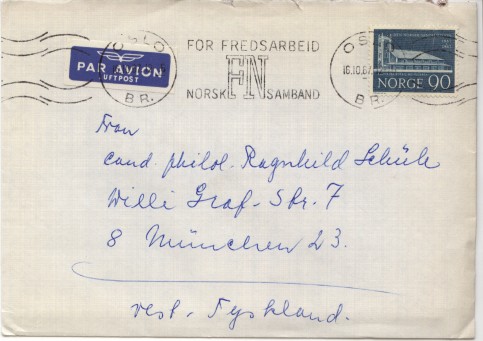 OSLO
BR.
PAR AVION
LUFTPOST
FOR FREDSARBEID
FN
NORSK SAMBAND
OSLO
16.10.67
BR.
NORGE 90
Frau
cand. philol. Ragnhild Schüle
Willi Graf-Str. 7
8 München 23.
Vest-Tyskland.